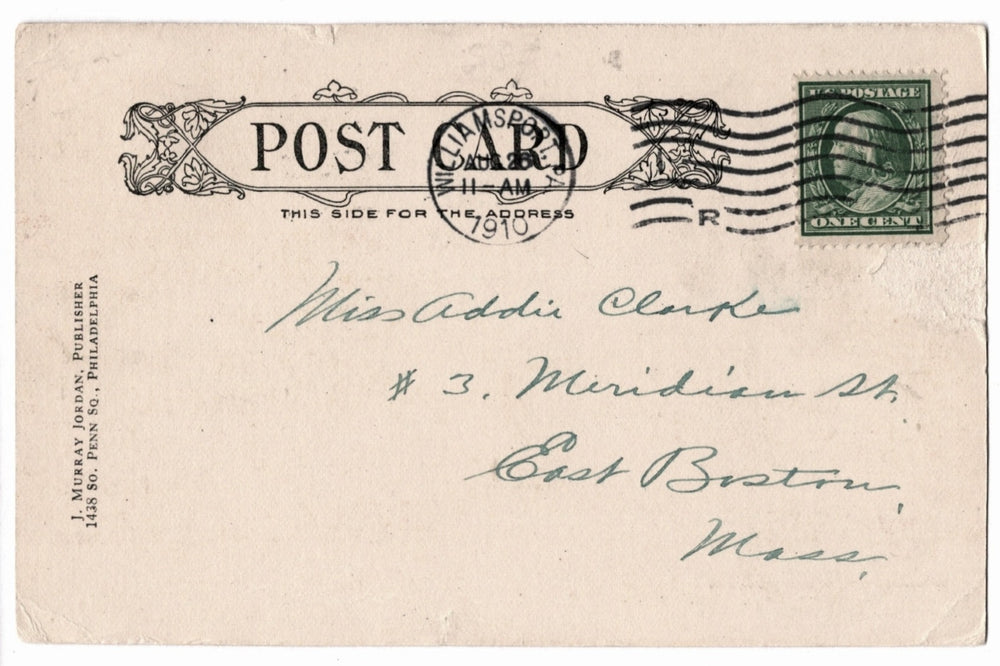 POST CARD
THIS SIDE FOR THE ADDRESS
WILLIAMSPORT, PA.
AUG 26
11-AM
1910
R
U.S. POSTAGE
ONE CENT
Miss Addie Clarke
# 3, Meridian St.
East Boston,
Mass.
J. MURRAY JORDAN, PUBLISHER
1438 SO. PENN SQ., PHILADELPHIA